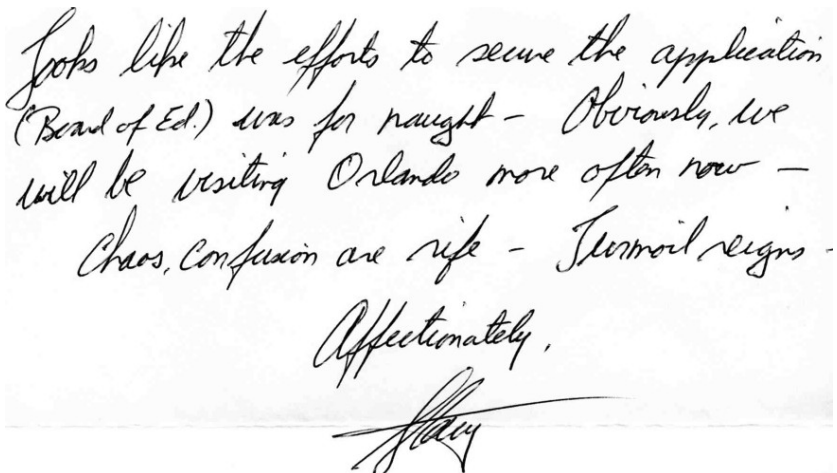 Looks like the efforts to secure the application
(Board of Ed.) was for naught – Obviously, we
will be visiting Orlando more often now –
Chaos, confusion are rife – Turmoil reigns –
Affectionately,